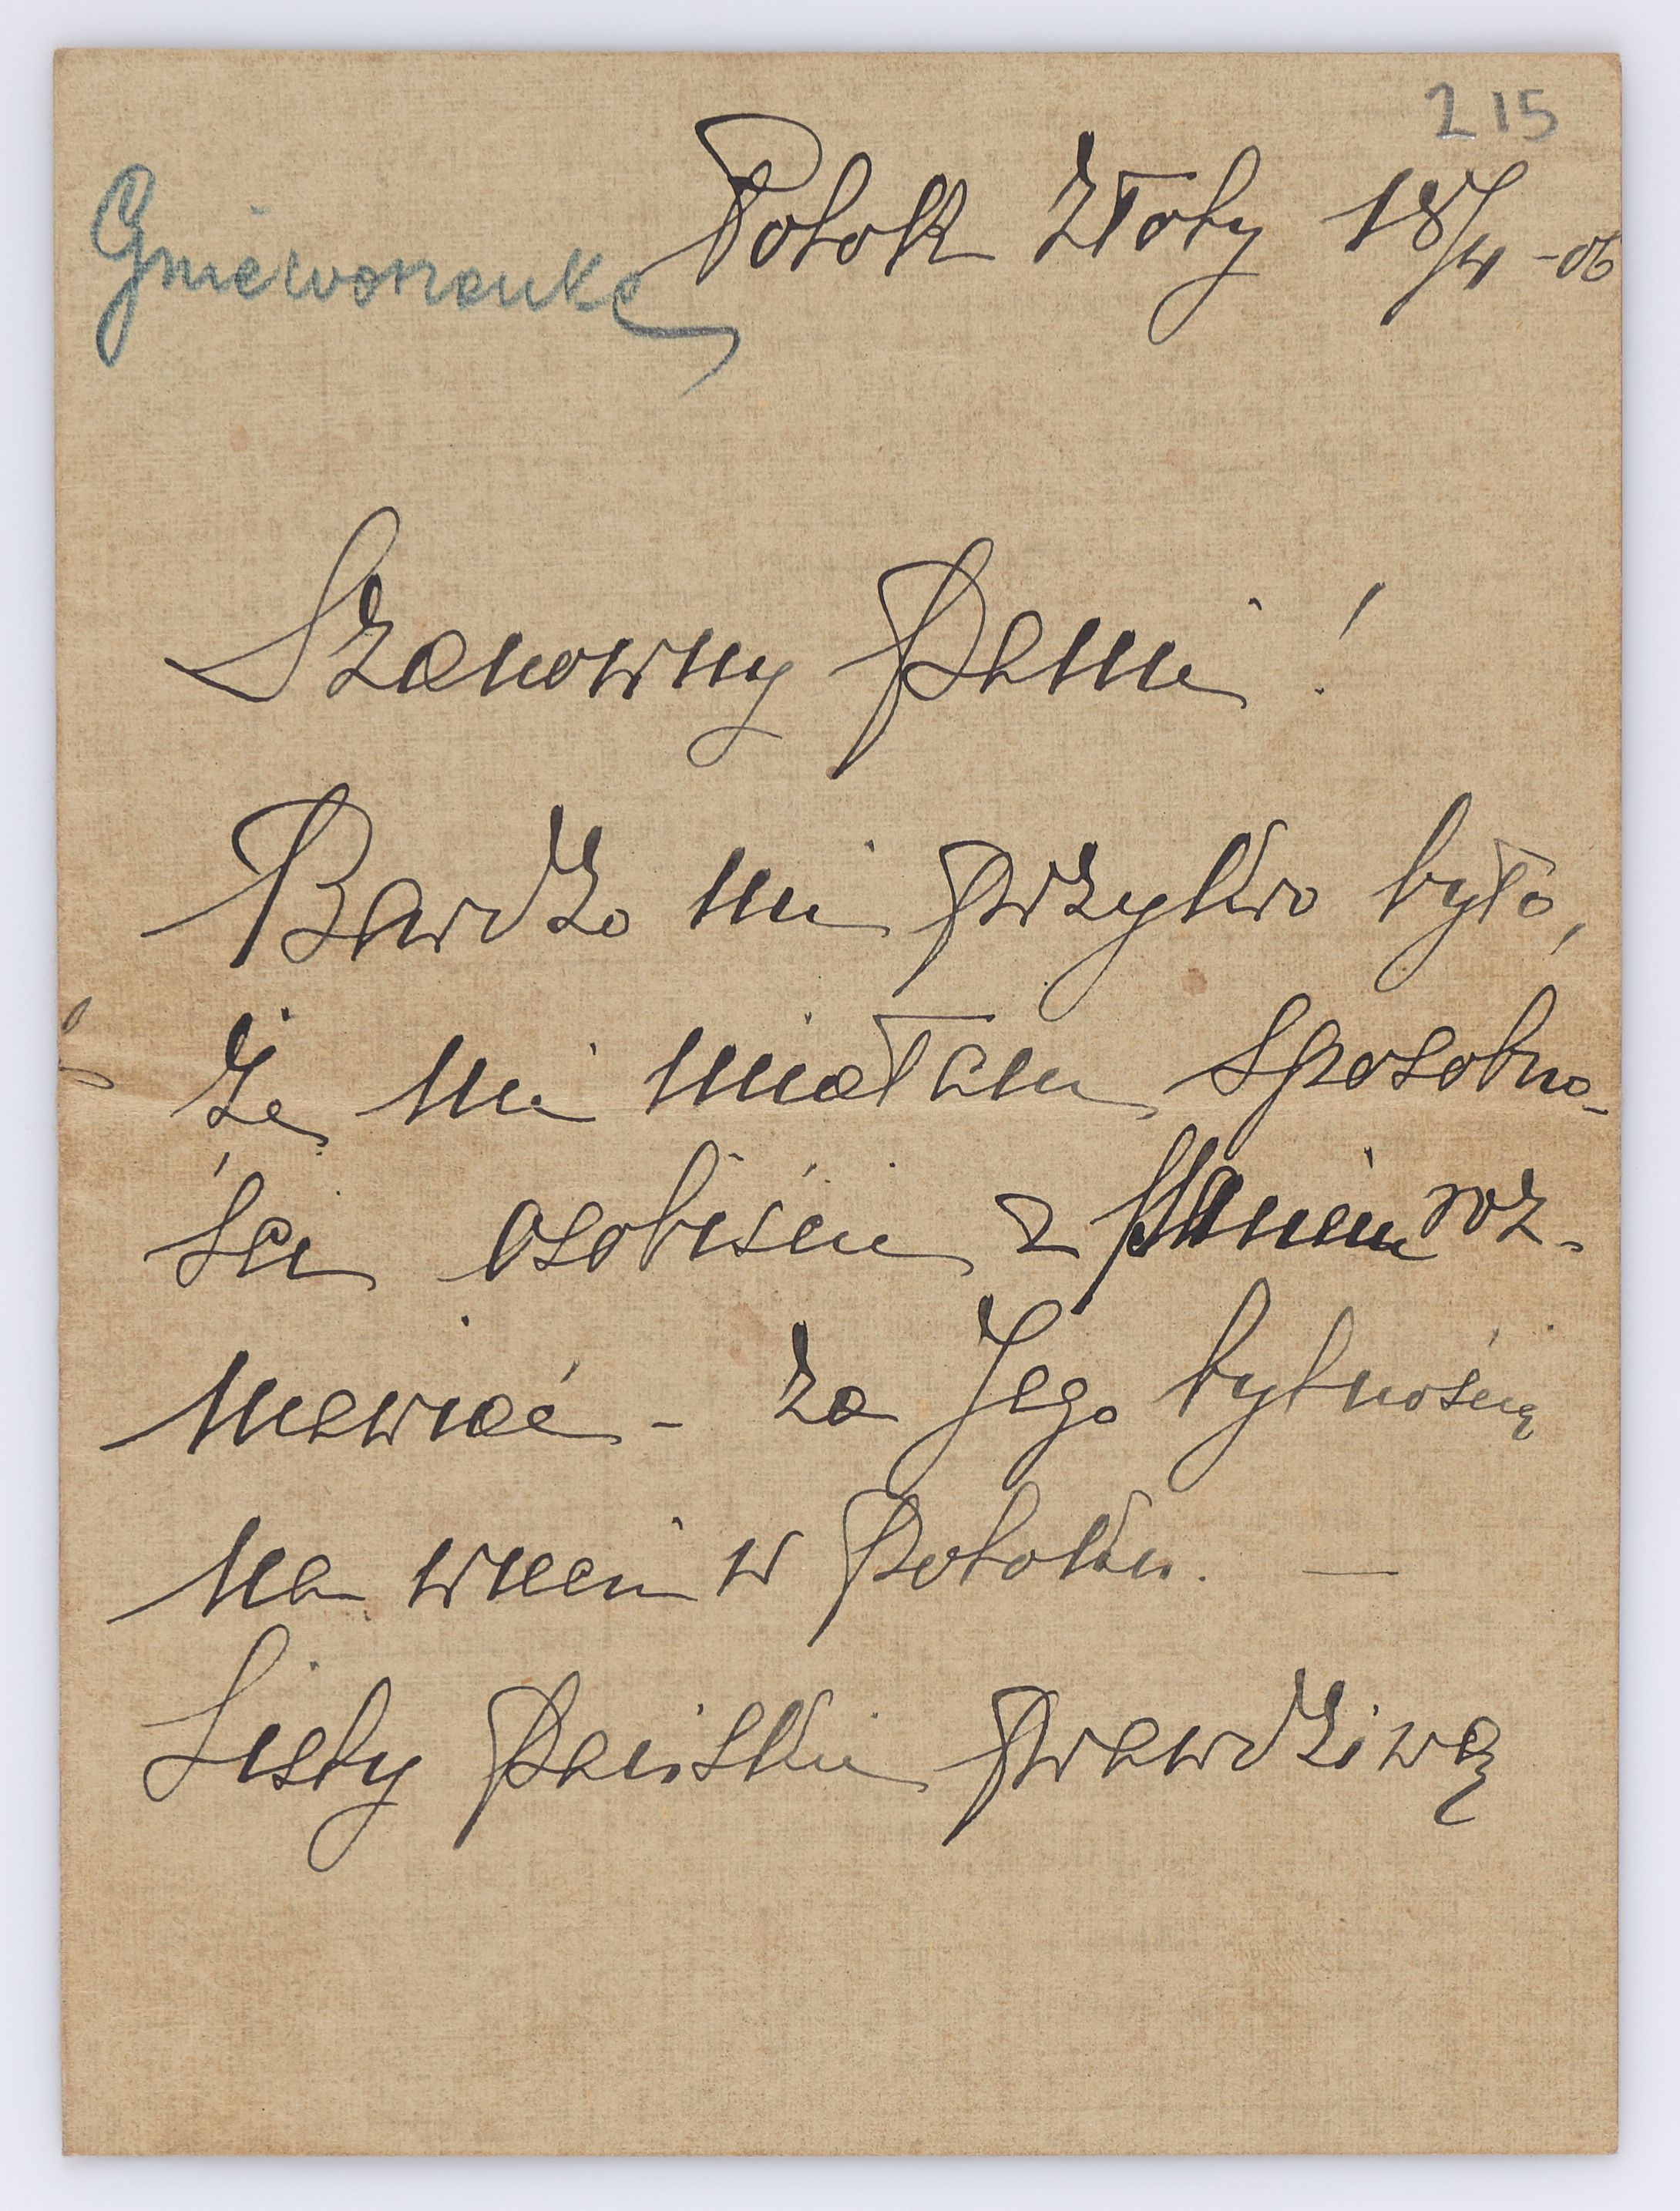 215
Potok Złoty 18/4 -06
Gniewosz
Szanowny Panie!
Bardzo mi przykro było,
że nie miałam sposobno-
ści osobiście z Panem roz-
mawiać - za Jego bytnością
na wieczi w Potoku. —
Listy Pańskie prawdziwą